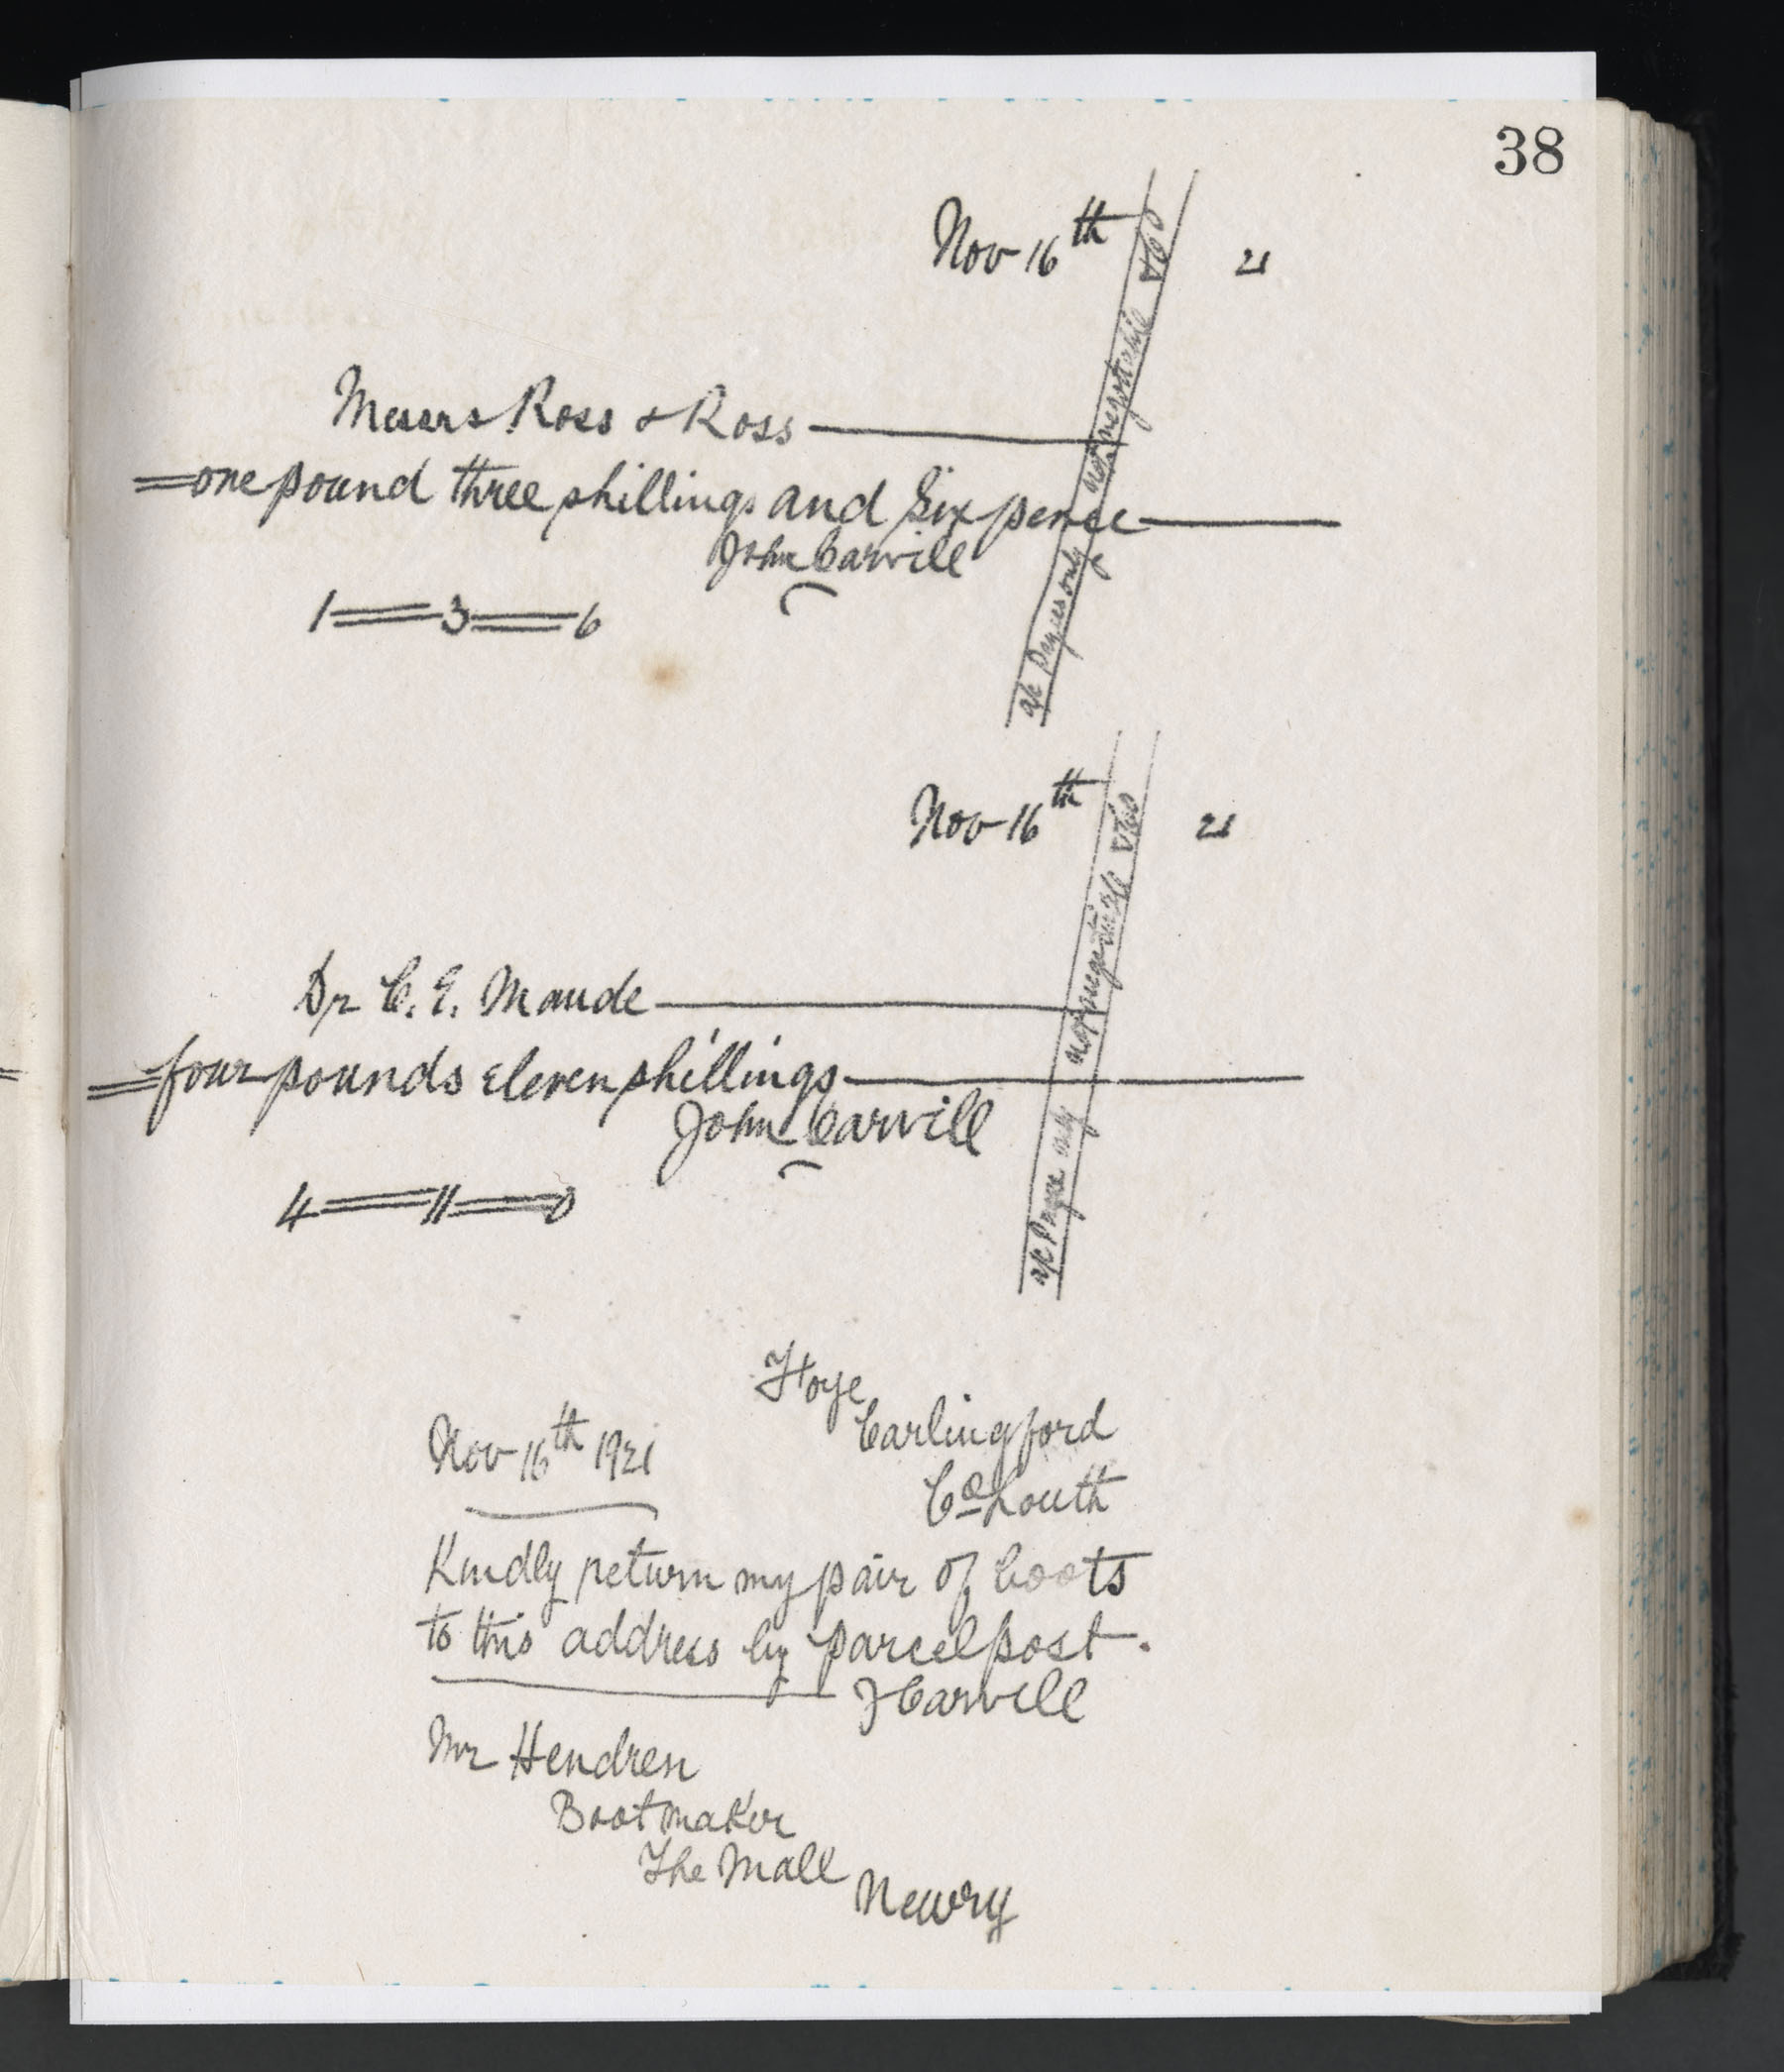 38
Nov 16th 21
Messrs Ross & Ross
one pound three shillings and Six pence
John Carvill
1 = 3 = 6
a/c Payees only not negotiable & Co
Nov 16th 21
Dr C. E. Maude
four pounds eleven shillings
John Carvill
4 = 11 = 0
a/c Payee only not negotiable & Co
Carlingford
Co Louth
Nov 16th 1921
Kindly return my pair of boots
to this address by parcel post.
J Carvill
Mr Hendren
Bootmaker
The Mall
Newry